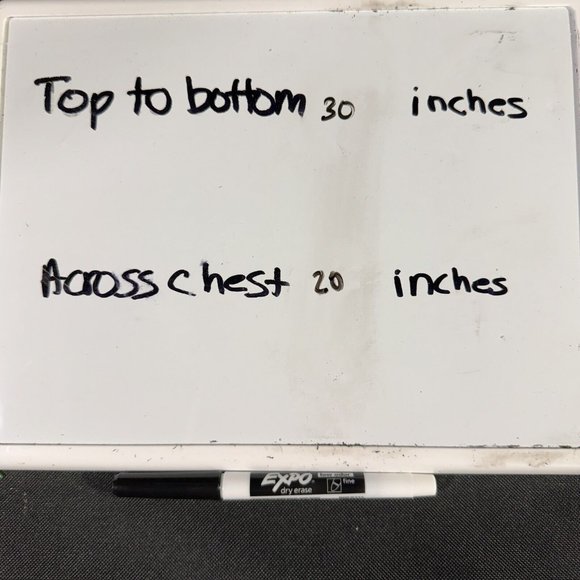 Top to bottom 30 inches
Across chest 20 inches
EXPO
dry erase
fine